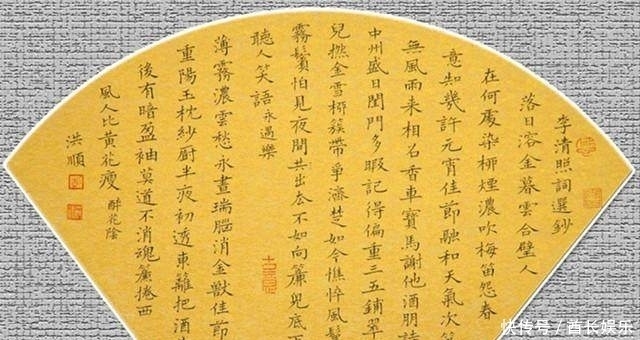 李清照詞選鈔
落日溶金暮雲合璧人
在何處染柳煙濃吹梅笛怨春
意知幾許元宵佳節融和天氣次
無風雨來相召香車寶馬謝他酒朋詩
中州盛日閨門多暇記得偏重三五鋪翠
兒撚金雪柳簇帶爭濟楚如今憔悴風鬟
霧鬢怕見夜間共出去不如向簾兒底下
聽人笑語 永遇樂
薄霧濃雲愁永晝瑞腦消金獸佳節
重陽玉枕紗厨半夜初透東籬把酒
後有暗盈袖莫道不消魂簾捲西
風人比黃花瘦 醉花陰
洪順
快传号/酋长娱乐